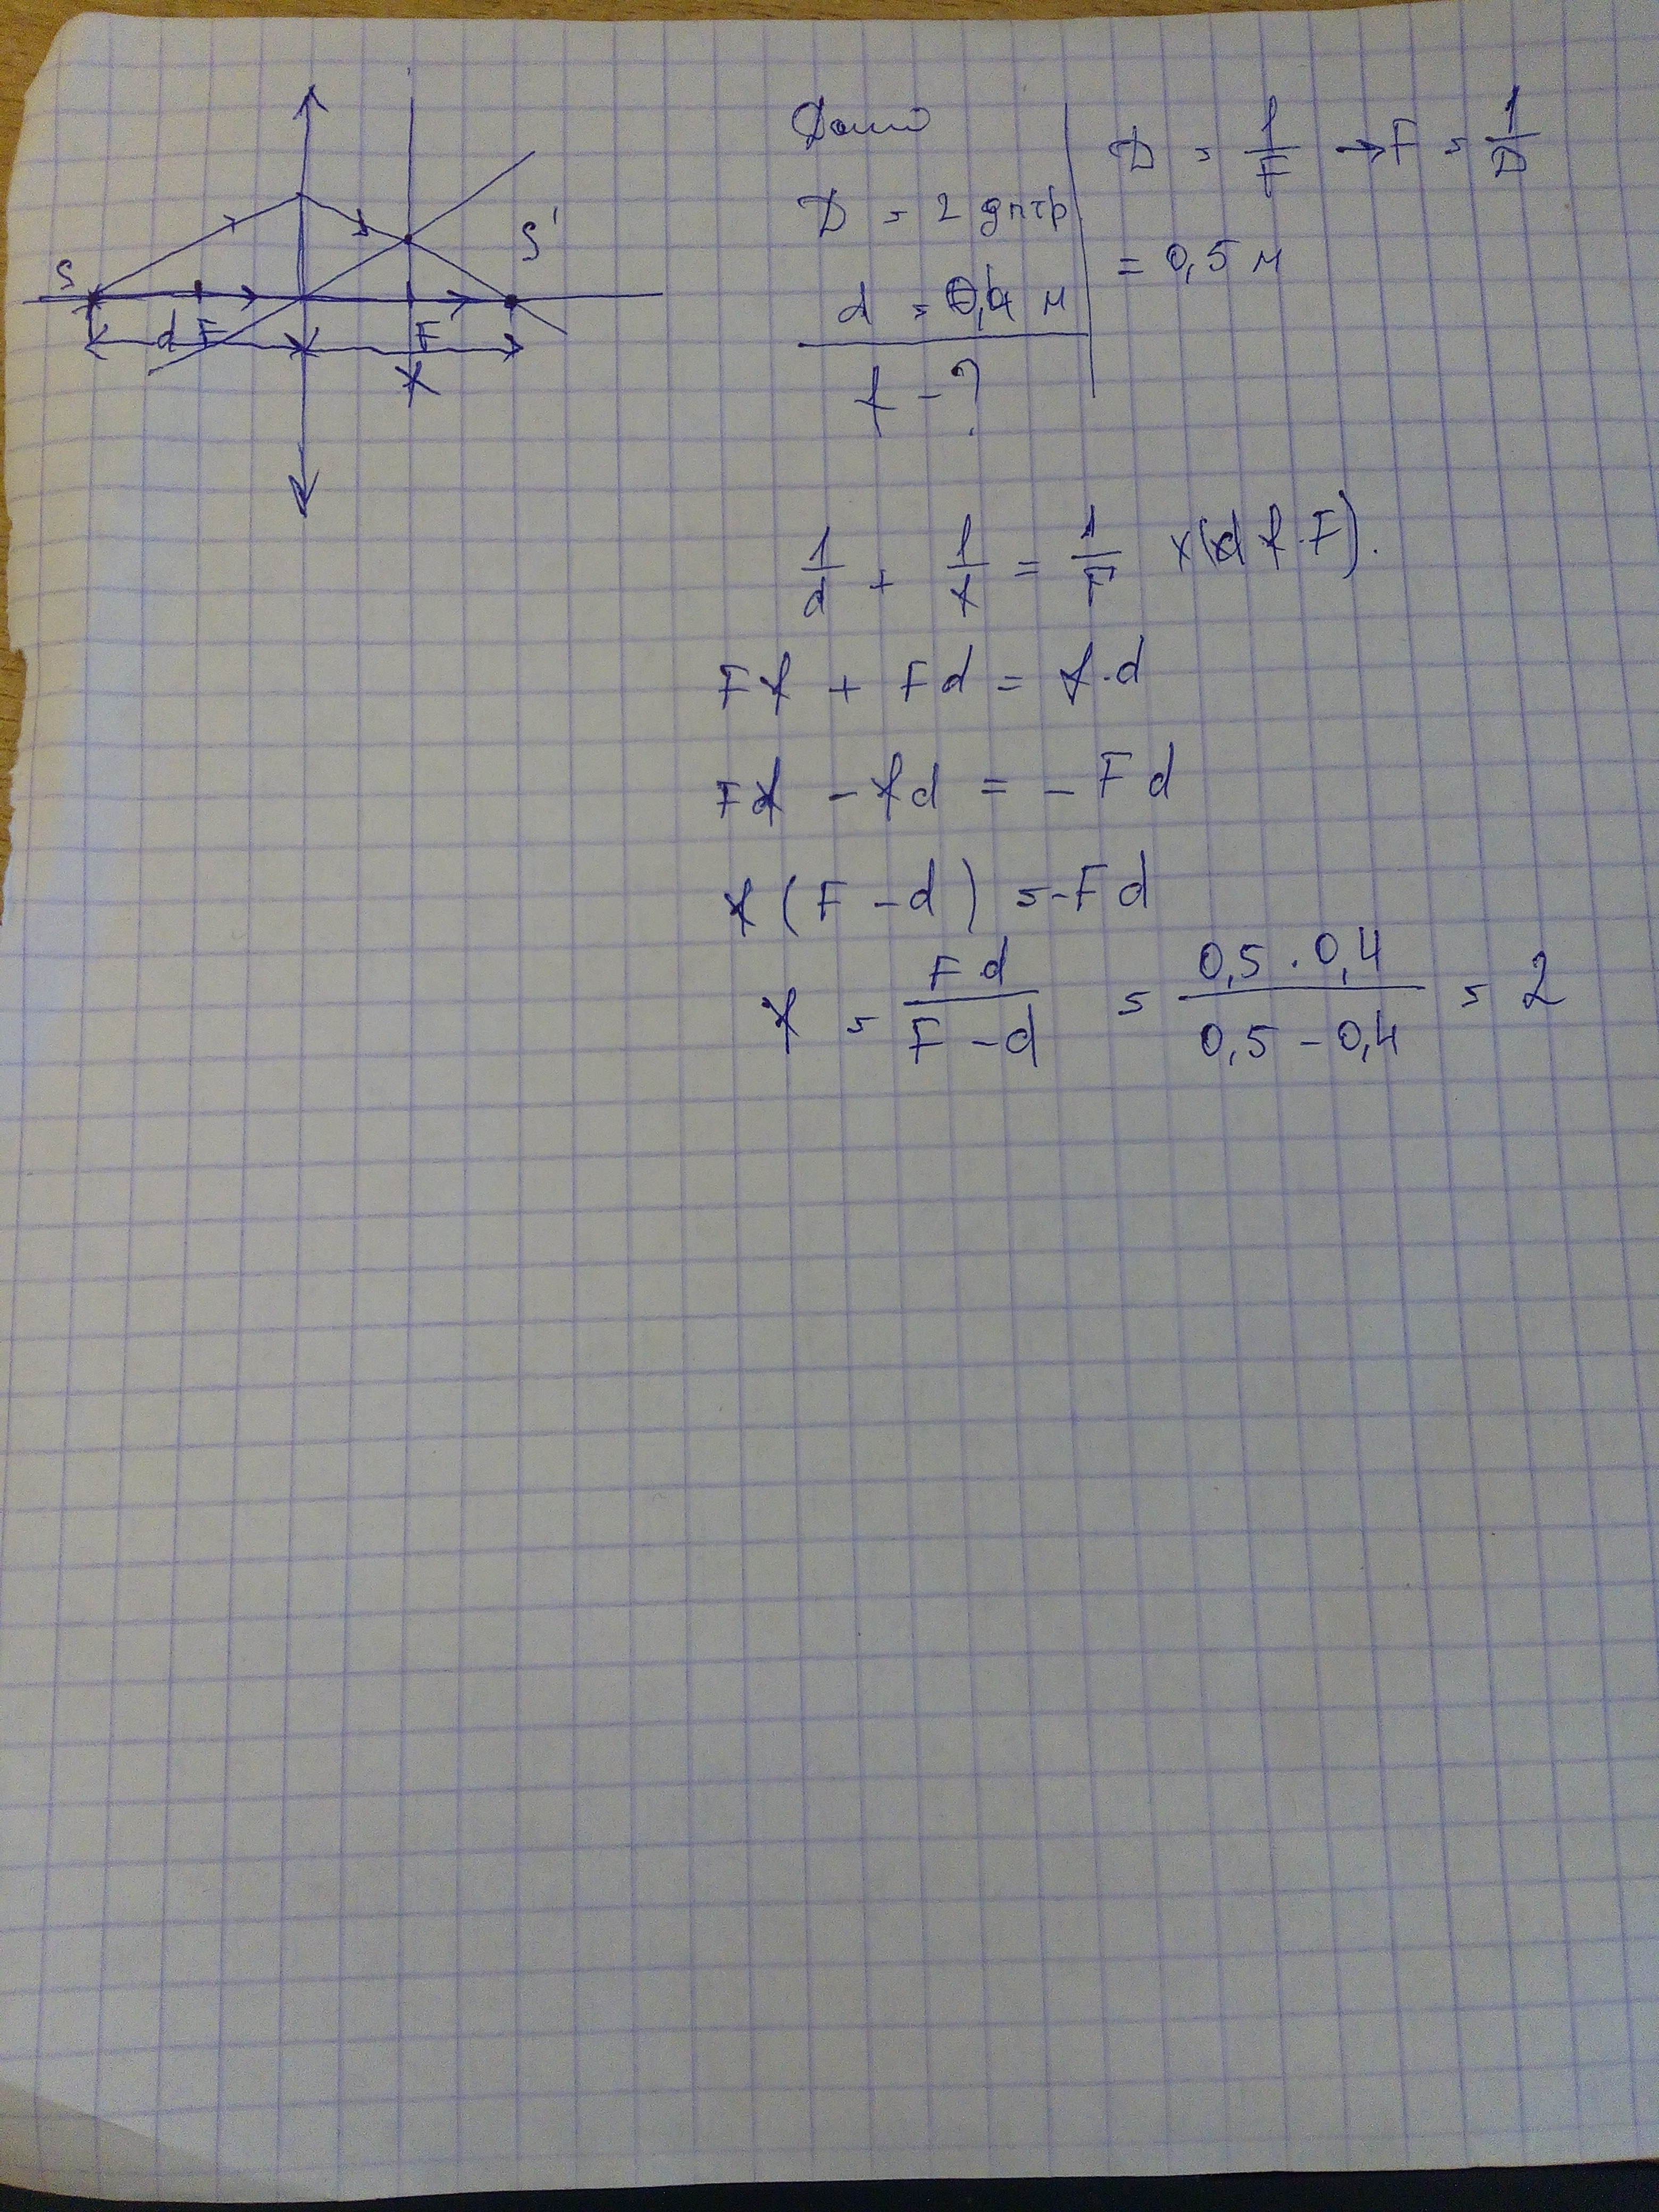 Дано
D = 2 дптр
d = 0,4 м
f - ?
D = 1/F → F = 1/D
= 0,5 м
S
S'
d F
F
f
1/d + 1/f = 1/F ×(d f·F).
Ff + Fd = f·d
Ff - fd = - Fd
f(F - d) = -Fd
f = Fd/(F - d) = (0,5 · 0,4)/(0,5 - 0,4) = 2